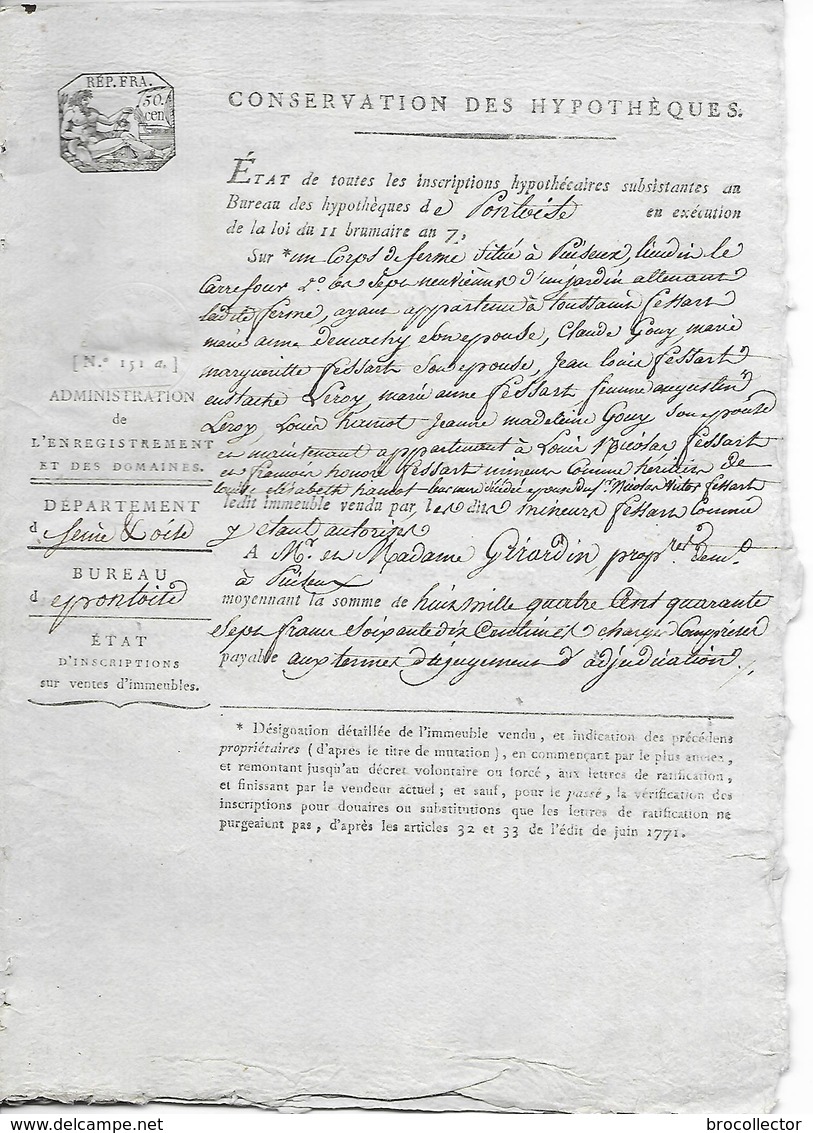 RÉP. FRA.
50.
cen.
CONSERVATION DES HYPOTHÈQUES.
ÉTAT de toutes les inscriptions hypothécaires subsistantes au
Bureau des hypothèques de Pontoise en exécution
de la loi du 11 brumaire an 7,
Sur * un Corps de ferme située à Puiseux, lieudit le
Carrefour 2.° les Sept neuviemes d'un jardin attenant
ladite ferme, ayant appartenu à toussaint fessart
marie anne demachy son epouse, Claude Gouy, marie
margueritte fessart son epouse, Jean louis fessart
eustache Leroy, marie anne fessart femme augustin
Leroy, Louis hamot Jeanne madeleine Gouy son epouse
et maintenant appartenant à Louis Nicolas fessart
et francois honoré fessart mineurs comme heritiers de
louise elisabeth hamot leur mere décédée epouse du S.r Nicolas Victor fessart
ledit immeuble vendu par les dits mineurs fessart comme
y etant autorisés
A Mr. et Madame Girardin, propres. dem.t
à Puiseux
moyennant la somme de huit mille quatre Cent quarante
Sept francs Soixante dix Centimes charges Comprises
payable aux termes du jugement d'adjudication.
[ N.° 151 a. ]
ADMINISTRATION
de
L'ENREGISTREMENT
ET DES DOMAINES.
DÉPARTEMENT
d Seine & oise
BUREAU
d e pontoise
ÉTAT
D'INSCRIPTIONS
sur ventes d'immeubles.
* Désignation détaillée de l'immeuble vendu, et indication des précédens
propriétaires (d'après le titre de mutation), en commençant par le plus ancien,
et remontant jusqu'au décret volontaire ou forcé, aux lettres de ratification,
et finissant par le vendeur actuel; et sauf, pour le passé, la vérification des
inscriptions pour douaires ou substitutions que les lettres de ratification ne
purgeaient pas, d'après les articles 32 et 33 de l'édit de juin 1771.
brocollector